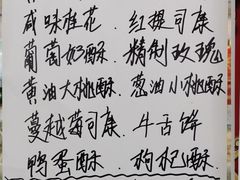 咸味桂花.红提司康
葡萄奶酥.精制玫瑰
黄油大桃酥.葱油小桃酥
蔓越莓司康.牛舌饼
鸭蛋酥.枸杞酥